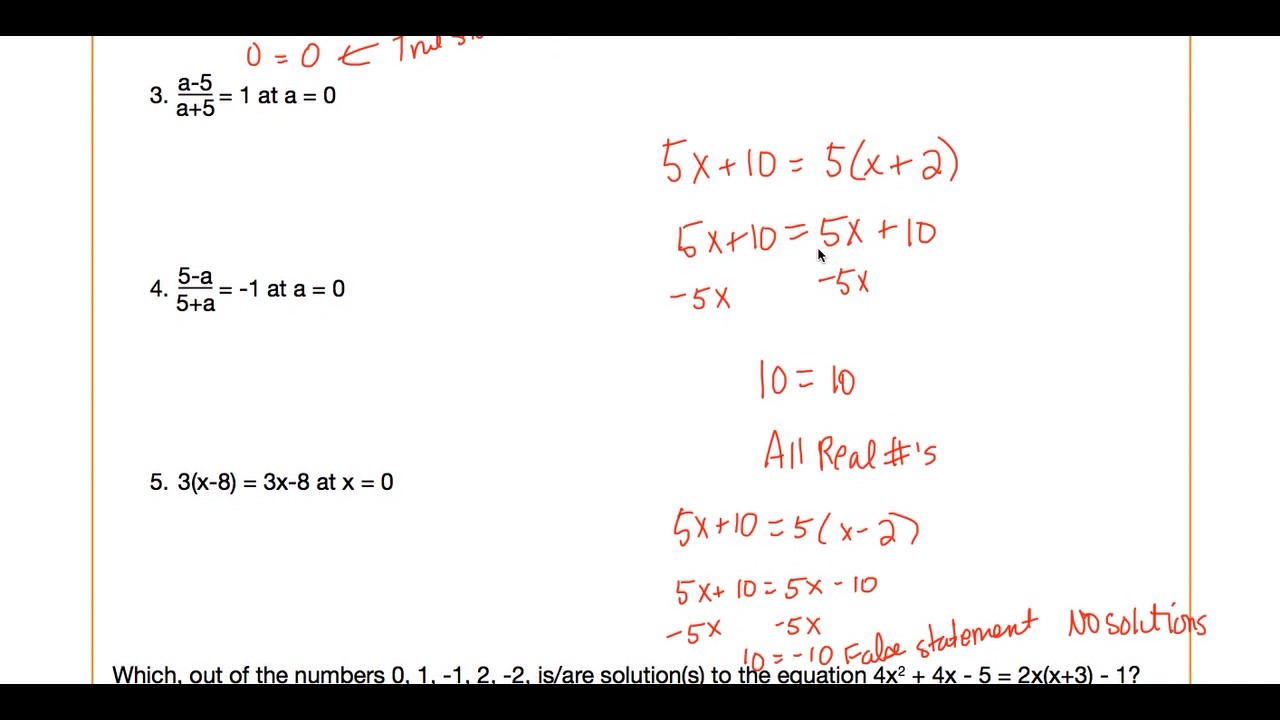 0 = 0 ←
3. a-5/a+5 = 1 at a = 0
4. 5-a/5+a = -1 at a = 0
5. 3(x-8) = 3x-8 at x = 0
5x+10 = 5(x+2)
5x+10 = 5x + 10
-5x -5x
10 = 10
All Real #'s
5x+10 = 5(x-2)
5x+10 = 5x - 10
-5x -5x
10 = -10 False statement No solutions
Which, out of the numbers 0, 1, -1, 2, -2, is/are solution(s) to the equation 4x² + 4x - 5 = 2x(x+3) - 1?